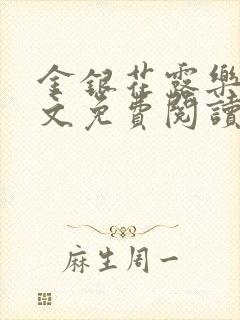 金银花露樂
文免費閱讀
麻生周一